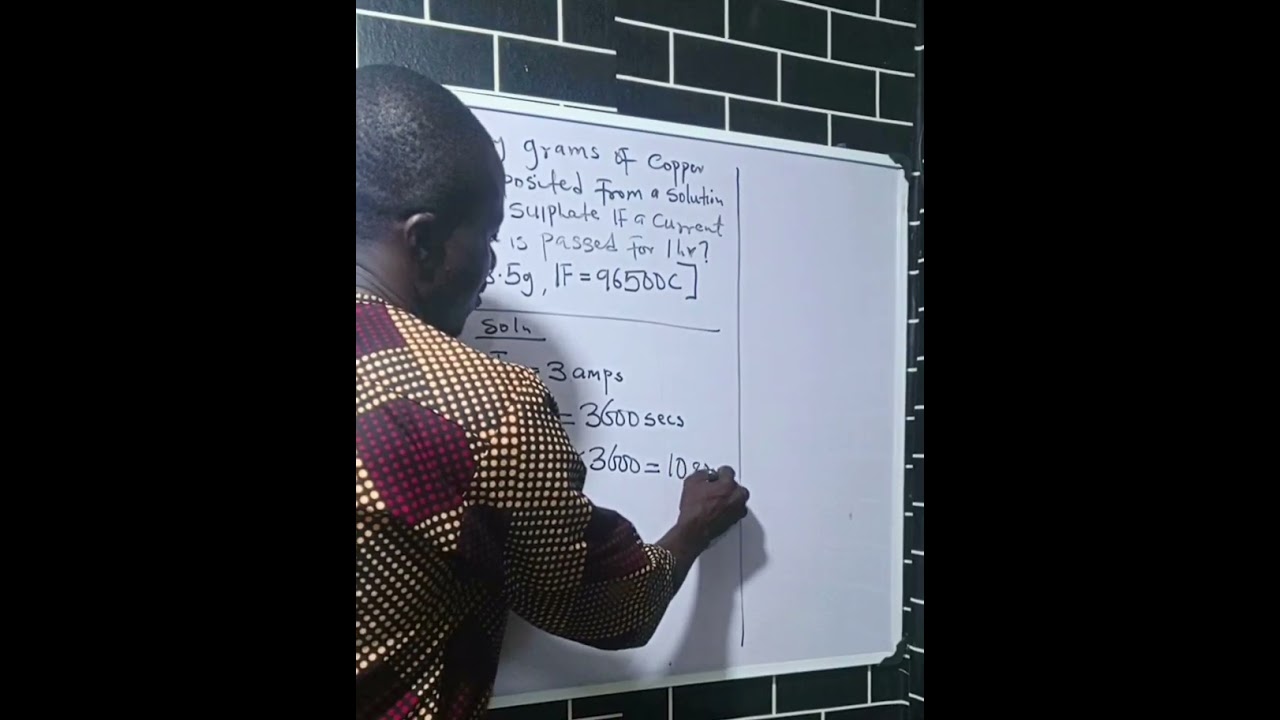 grams of Copper
posited from a solution
Sulphate If a Current
is passed for 1hr?
.5g, 1F = 96500C]
Soln
= 3 amps
= 3600 secs
3600 = 10